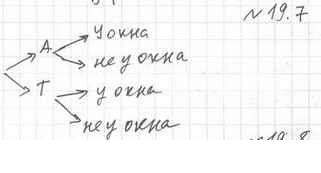 № 19.7
А
у окна
не у окна
Т
у окна
не у окна